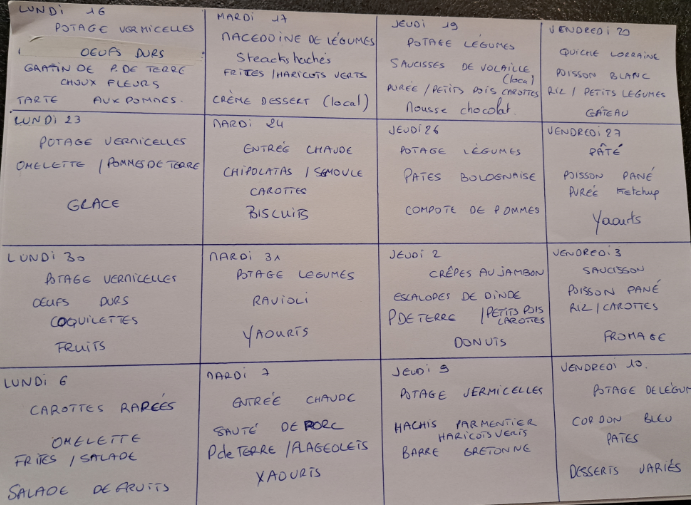 LUNDI 16
POTAGE VERMICELLES
OEUFS DURS
GRATIN DE P. DE TERRE
CHOUX FLEURS
TARTE AUX POMMES.
MARDI 17
MACEDOINE DE LÉGUMES
Steacks hachés
FRITES / HARICOTS VERTS
CRÈME DESSERT (local)
JEUDI 19
POTAGE LÉGUMES
SAUCISSES DE VOLAILLE
(local)
PUREE / PETITS POIS CAROTTES
Mousse chocolat
VENDREDI 20
QUICHE LORRAINE
POISSON BLANC
RIZ / PETITS LEGUMES
GÂTEAU
LUNDI 23
POTAGE VERMICELLES
OMELETTE / POMMES DE TERRE
GLACE
MARDI 24
ENTRÉE CHAUDE
CHIPOLATAS / SEMOULE
CAROTTES
BISCUITS
JEUDI 26
POTAGE LÉGUMES
PATES BOLOGNAISE
COMPOTE DE POMMES
VENDREDI 27
PÂTÉ
POISSON PANÉ
PURÉE Ketchup
Yaourts
LUNDI 30
POTAGE VERMICELLES
OEUFS DURS
COQUILETTES
FRUITS
MARDI 31
POTAGE LEGUMES
RAVIOLI
YAOURTS
JEUDI 2
CRÊPES AU JAMBON
ESCALOPES DE DINDE
P DE TERRE / PETITS POIS
CAROTTES
DONUTS
VENDREDI 3
SAUCISSON
POISSON PANÉ
RIZ / CAROTTES
FROMAGE
LUNDI 6
CAROTTES RAPÉES
OMELETTE
FRITES / SALADE
SALADE DE FRUITS
MARDI 7
ENTRÉE CHAUDE
SAUTÉ DE PORC
P de TERRE / FLAGEOLETS
YAOURTS
JEUDI 9
POTAGE VERMICELLES
HACHIS PARMENTIER
HARICOTS VERTS
BARRE BRETONNE
VENDREDI 10.
POTAGE DE LÉGUM
CORDON BLEU
PATES
DESSERTS VARIÉS